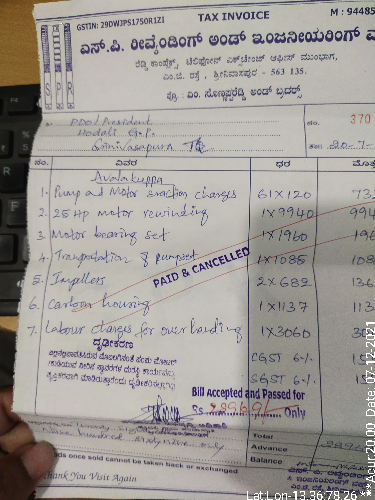 GSTIN: 29DWJPS1750R1ZI TAX INVOICE M : 9448
ಎಸ್.ಪಿ. ರೀವೈಂಡಿಂಗ್ ಅಂಡ್ ಇಂಜನೀಯರಿಂಗ್
ರೆಡ್ಡಿ ಕಾಂಪ್ಲೆಕ್ಸ್, ಟೆಲಿಫೋನ್ ಎಕ್ಸ್‌ಚೇಂಜ್ ಆಫೀಸ್ ಮುಂಭಾಗ,
ಎಂ.ಜಿ. ರಸ್ತೆ, ಶ್ರೀನಿವಾಸಪುರ - 563 135.
ಪ್ರೊ : ಎಂ. ಸೊಣ್ಣಪ್ಪರೆಡ್ಡಿ ಅಂಡ್ ಬ್ರದರ್ಸ್
PDO / President
Hodali G.P.
Srinivasapura
370
20-7-
ನಂ. ವಿವರ ದರ
Avalakuppa
1. Pump and Motor eraction charges 61X120 732
2. 25 Hp motor rewinding 1X9940 994
3. Motor bearing set 1X1960 196
4. Transportation of pumpset 1X1085 108
5. Impellers 2X682 136
6. Carbon housing 1X1137 113
7. Labour charges for over haulding 1X3060 30
PAID & CANCELLED
ದೃಢೀಕರಣ
CGST 6%
SGST 6%
Bill Accepted and Passed for
Only
Total
Advance
Balance
Goods once sold cannot be taken back or exchanged
Thank You Visit Again
Lat,Lon-13.3678,26
Acur 20.00, Date, 07-12-2021